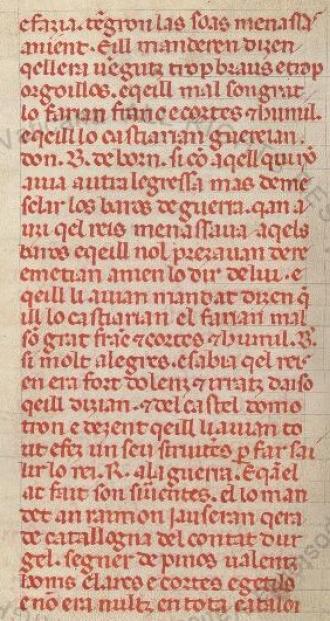 efazia. tẽgron las soas menassas
anient. Eill manderen dizen
qellera uẽgutz trop braus e trop
orgoillos. eqeill mal songrat
lo farian franc e cortes ⁊ humil.
eqeill lo castiarian guereian.
don. B. deborn. si cõ aqell qui
auia autra legressa mas deme
sclar los baros deguerra. qan a
uzi qel reis menassaua aqels
baros eqeill nol prezauan de re
emetian anien lo dir delui. e
qeill li auian mandat dizen q̃
ill lo castiarian el farian mal
sõ grat frãc ⁊ cortes ⁊ humil. B.
si molt alegres. esabia qel reis
en era fort dolenz ⁊ irratz daiso
qeill dizian. ⁊ del castel domo
tron e dezent qeill li auian to
ut efez un seu siruẽtes p far sai
lir lo rei. R. ala guerra. E qãel
ac fait son siruentes. el lo man
det an raimon iauseran qera
de catallogna del contat dur
gel. segner de pinos ualentz
homs e larcs e cortes e gentils
e nõ era nultz en tota cataloi